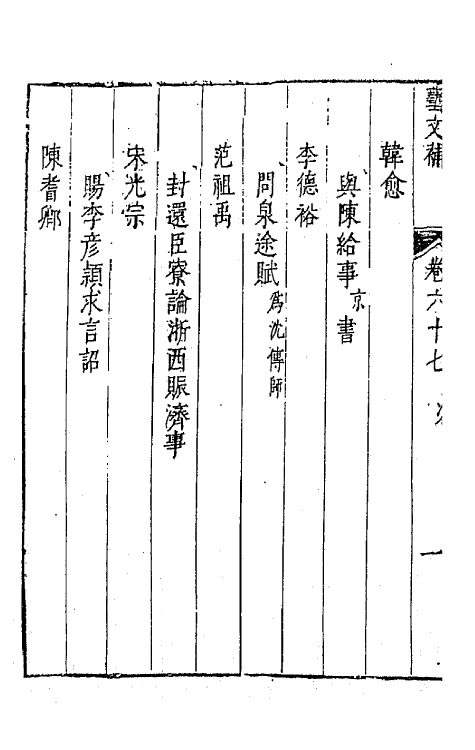 藝文補 卷六十七 一
韓愈
與陳給事京書
李德裕
問泉途賦為沈傳師
范祖禹
封還臣寮論浙西賑濟事
宋光宗
賜李彥穎求言詔
陳耆卿